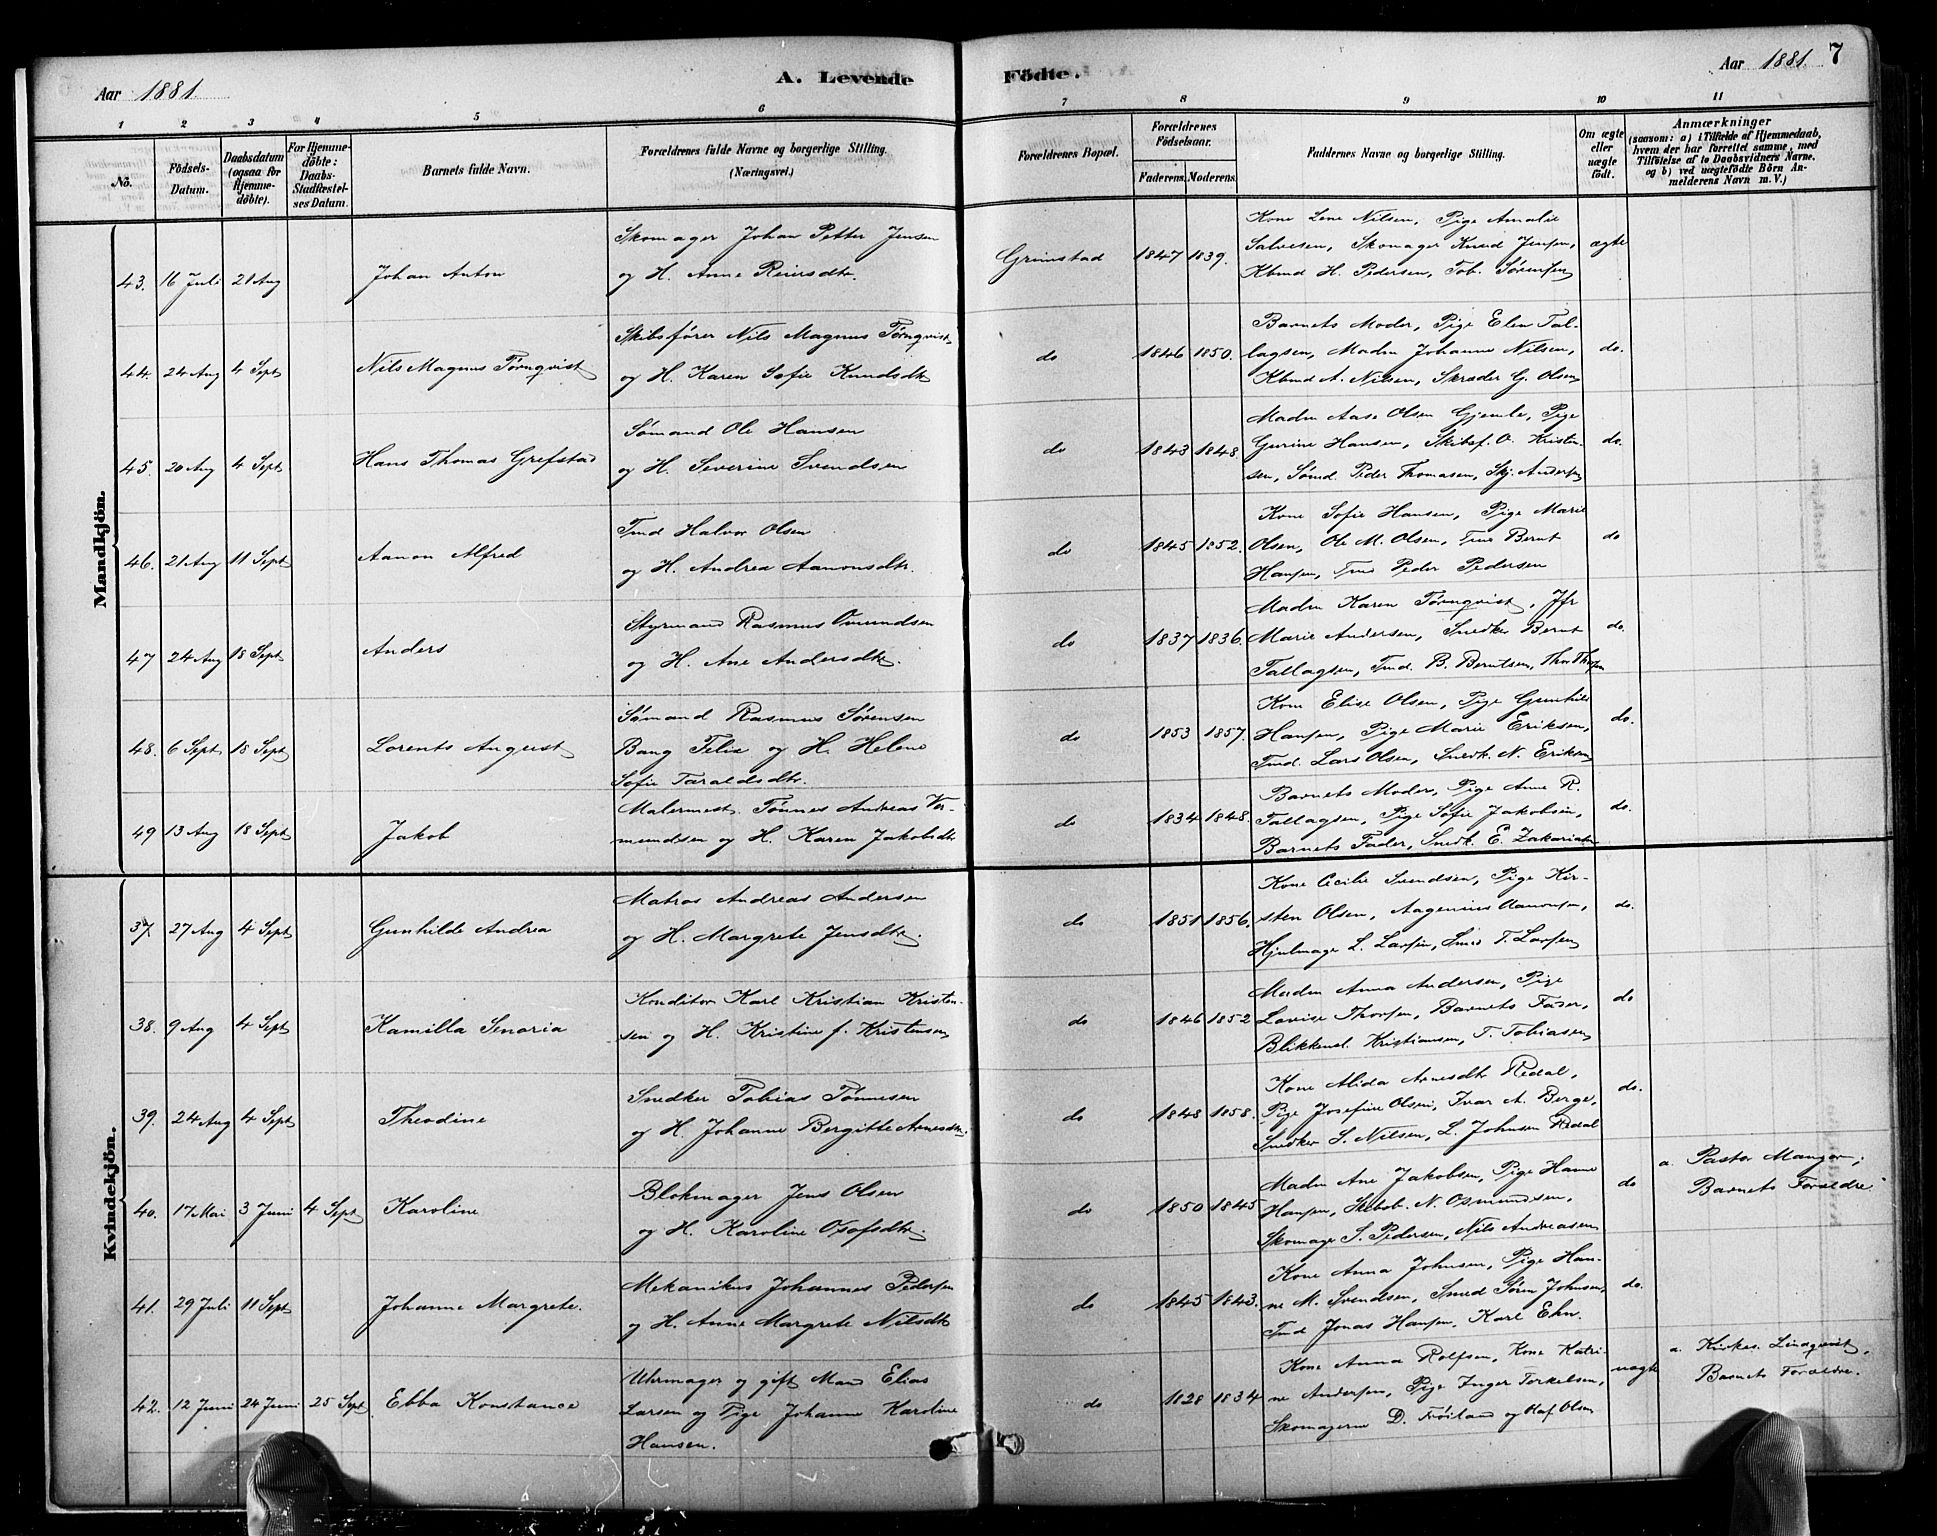 Aar 1881. A. Levende Födte. Aar 1881. 7
1 2 3 4 5 6 7 8 9 10 11
No. Födsels-Datum. Daabsdatum (ogsaa for Hjemmedöbte). For Hjemmedöbte: Daabs-Stadfæstelses Datum. Barnets fulde Navn. Forældrenes fulde Navne og borgerlige Stilling. (Næringsvei.) Forældrenes Bopæl. Forældrenes Födselsaar. Faderens. Moderens. Faddernes Navne og borgerlige Stilling. Om ægte eller uægte födt. Anmærkninger (saasom: a) i Tilfælde af Hjemmedaab, hvem der har forrettet samme, med Tilföielse af to Daabsvidners Navne, og b) ved uægtefödte Börn Anmelderens Navn m. V.)
Mandkjön.
43. 16 Juli 21 Aug Johan Anton
Skomager Johan Petter Jensen
og H. Anne Reiersdtr.
Grimstad 1847 1839.
Kone Lene Nilsen, Pige Amalie
Salvesen, Skomager Knud Jensen,
Kbmd H. Pedersen, Tob. Sørensen
ægte
44. 24 Aug 4 Sept Nils Magnus Tørnqvist
Skibsfører Nils Magnus Tørnqvist
og H. Karen Sofie Knudsdtr
do 1846 1850.
Barnets Moder, Pige Elen Tal-
lagsen, Madm Johanne Nilsen,
Kbmd A. Nilsen, Skræder G. Olsen
do.
45. 20 Aug 4 Sept Hans Thomas Grefstad
Sømand Ole Hansen
og H. Severine Svendsen
do 1843 1848.
Madm Aase Olsen Gjemle, Pige
Gurine Hansen, Skibsf. O. Kristen-
sen, Sømd. Peder Thomasen, Skj. Andersen
do.
46. 21 Aug 11 Sept Aanon Alfred
Tmd Halvor Olsen
og H. Andrea Aanonsdtr.
do 1845 1852.
Kone Sofie Hansen, Pige Marie
Olsen, Ole M. Olsen, Tmd Bernt
Hansen, Tmd Peder Pedersen
do
47 24 Aug 18 Sept Anders
Styrmand Rasmus Omundsen
og H. Ane Andersdtr.
do 1837 1836.
Madm Karen Tørnqvist, Jfr
Marie Andersen, Snedker Bernt
Tallagsen, Tmd. B. Berntsen, Thor Thorsen
do.
48. 6 Sept. 18 Sept Lorents August
Sømand Rasmus Sørensen
Bang Felix og H. Helene
Sofie Taraldsdtr.
do 1853 1857.
Kone Elise Olsen, Pige Gunhild
Hansen, Pige Marie Eriksen,
Tmd. Lars Olsen, Snedk. N. Eriksen
do.
49 13 Aug 18 Sept. Jakob
Malermest. Tønnes Andreas Ver-
mundsen og H. Karen Jakobsdtr
do 1834 1848.
Barnets Moder, Pige Anne R.
Tallagsen, Pige Sofie Jakobsen,
Barnets Fader, Snedk. E. Zakariasen
do.
Kvindekjön.
37. 27 Aug 4 Sept Gunhilde Andrea
Matros Andreas Andersen
og H. Margrete Jensdtr.
do 1851 1856.
Kone Cecilie Svendsen, Pige Kir-
sten Olsen, Aagenius Aanonsen,
Hjulmager L. Larsen, Smed T. Larsen
do.
38. 9 Aug 4 Sept Kamilla Senoria
Konditor Karl Kristian Kristen-
sen og H. Kristine f. Kristensen
do 1846 1852
Madm Anna Andersen, Pige
Lovise Thorsen, Barnets Fader,
Blikkensl. Kristiansen, T. Tobiasen
do
39. 24 Aug 4 Sept Theodine
Snedker Tobias Tønnesen
og H. Johanne Bergitte Arnesdtr.
do 1848 1858.
Kone Alida Arnesdtr Redal,
Pige Josefine Olsen, Ivar A. Berge,
Snedker S. Nilsen, L. Johnsen Redal
do.
40. 17 Mai 3 Juni 4 Sept Karoline
Blokmager Jens Olsen
og H. Karoline Osofsdtr.
do 1850 1845
Madm Ane Jakobsen, Pige Hanne
Hansen, Skibsb. N. Osmundsen,
Skomager S. Pedersen, Nils Andreasen
do
a. Pastor Manger;
Barnets Forældre
41. 29 Juli 11 Sept Johanne Margrete.
Mekanikus Johannes Pedersen
og H. Anne Margrete Nilsdtr
do 1845 1843.
Kone Anna Johnsen, Pige Han-
ne M. Svendsen, Smed Søren Johnsen,
Tmd Jonas Hansen, Karl Ehn.
do.
42. 12 Juni 24 Juni 25 Sept. Ebba Konstance
Uhrmager og gift Mand Elias
Larsen og Pige Johanne Karoline
Hansen.
do 1828 1834
Kone Anna Rolfsen, Kone Katri-
ne Andersen, Pige Inger Terkelsen,
Skomagerne D. Frøiland og Olaf Olsen
uægte
a. Kirkes. Lindqvist,
Barnets Forældre.